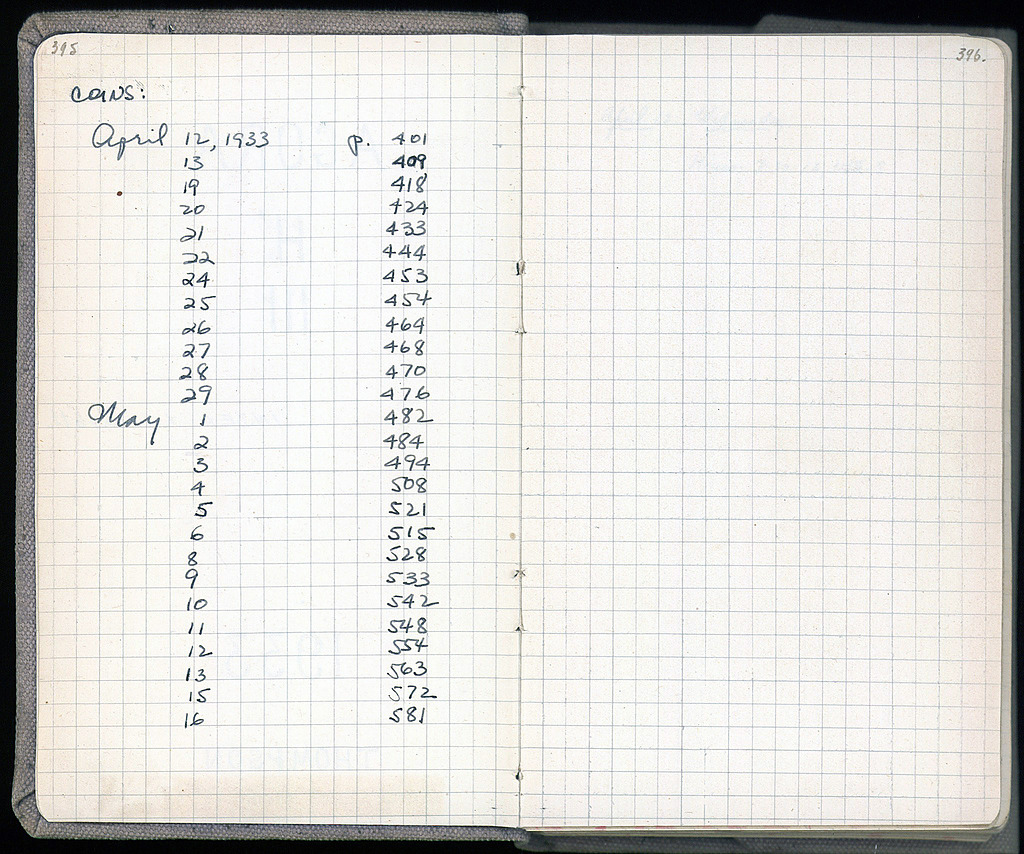 395
COINS:
April 12, 1933 p. 401
13 409
19 418
20 424
21 433
22 444
24 453
25 454
26 464
27 468
28 470
29 476
May 1 482
2 484
3 494
4 508
5 521
6 515
8 528
9 533
10 542
11 548
12 554
13 563
15 572
16 581
396.